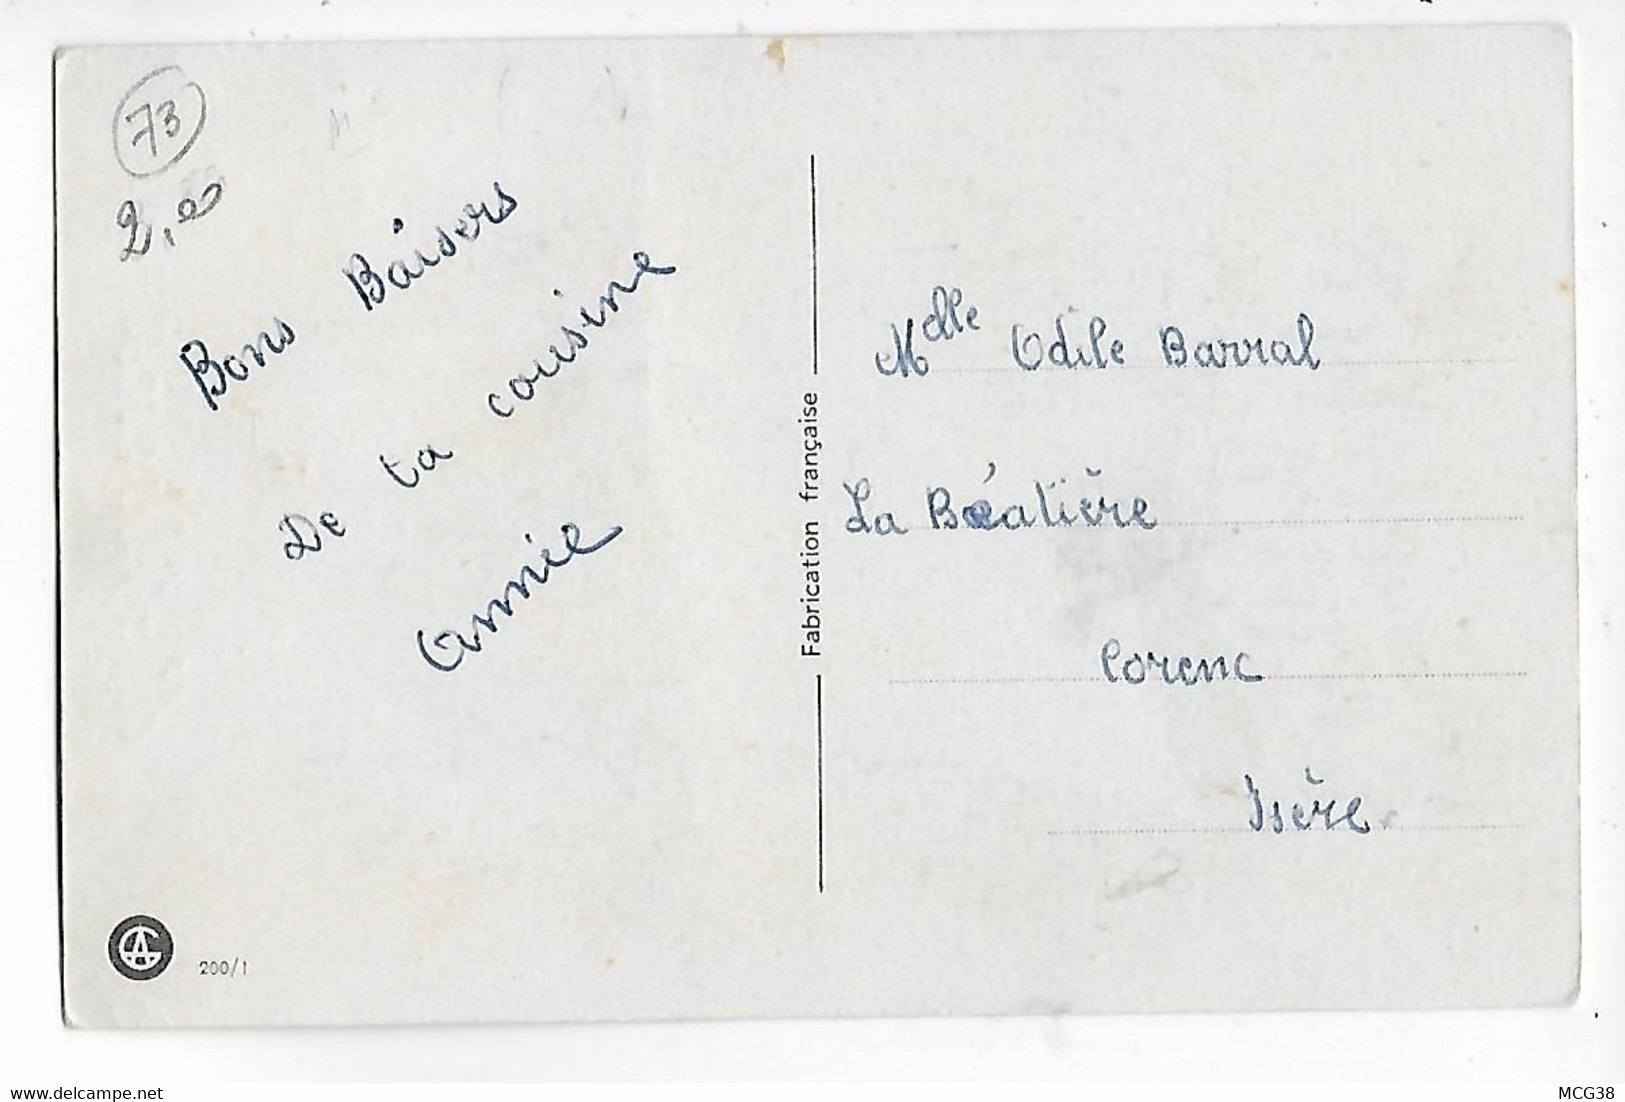 73
2,00
Bons Baisers
De ta cousine
Annie
Fabrication française
Mdlle Odile Barral
La Béatière
Corenc
Isère
200/1
the-bestof-delcampe.fr
MCG38